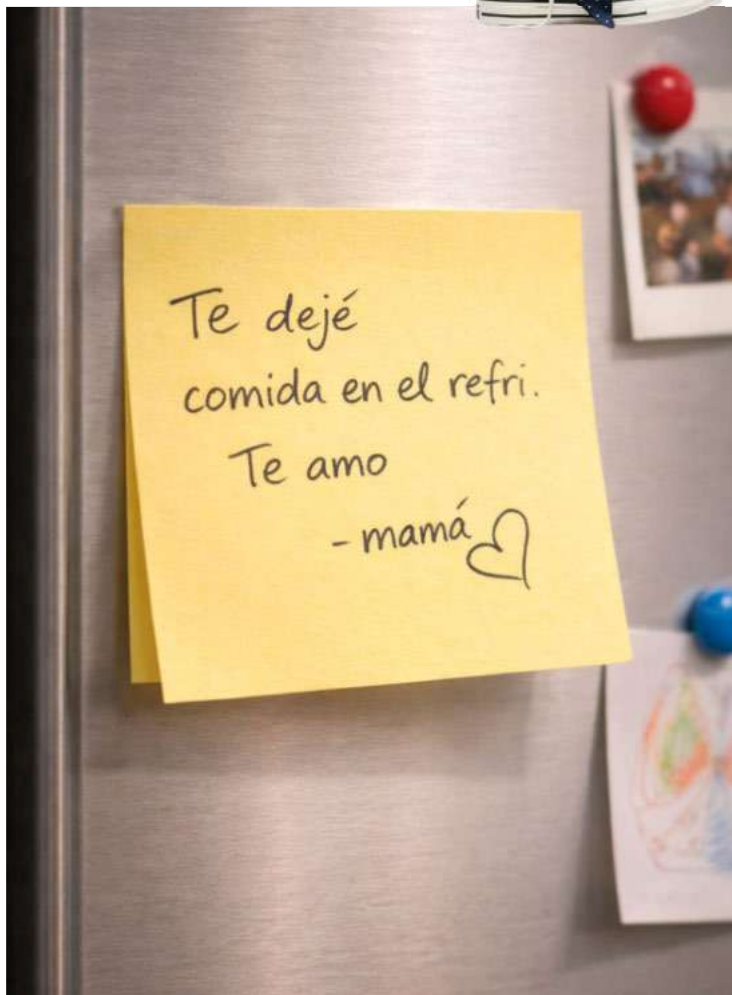 Te dejé
comida en el refri.
Te amo
- mamá